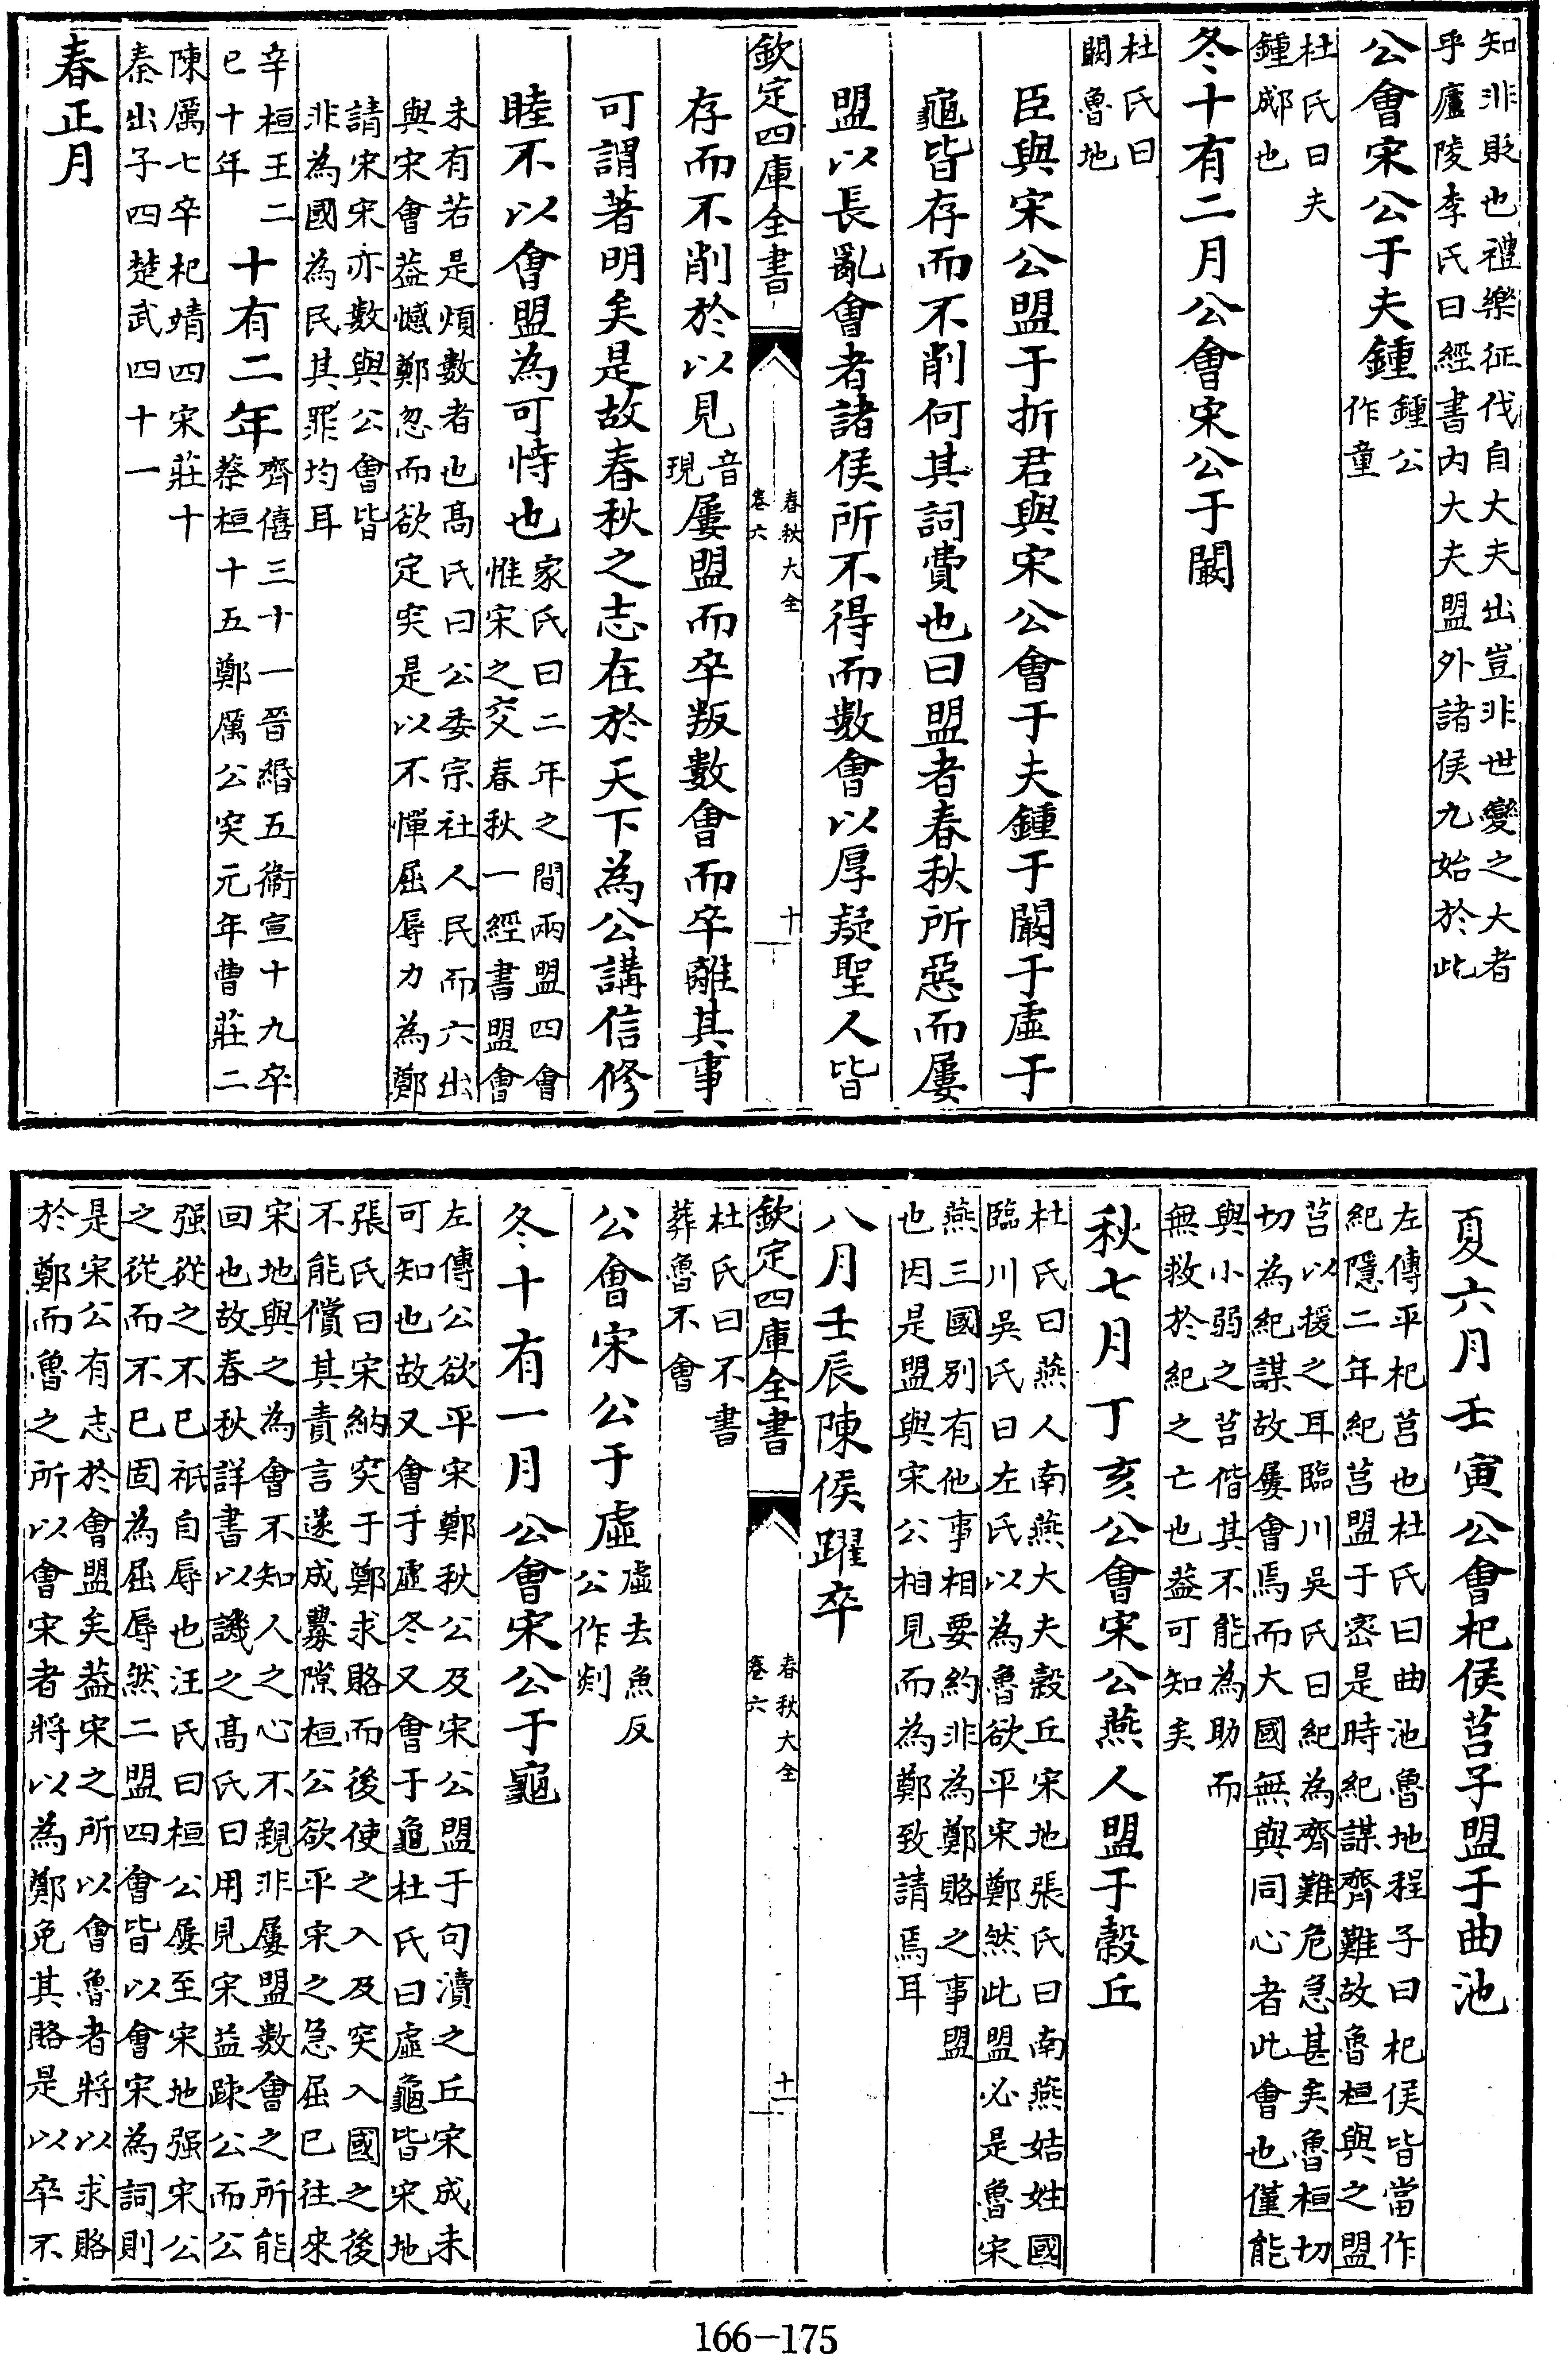 知非貶也禮樂征伐自大夫出豈非世變之大者
乎廬陵李氏曰經書内大夫盟外諸侯九始於此
公會宋公于夫鍾鍾公作童
杜氏曰夫
鍾郕也
冬十有二月公會宋公于闞
杜氏曰
闞魯地
臣與宋公盟于折君與宋公會于夫鍾于闞于虚于
龜皆存而不削何其詞費也曰盟者春秋所惡而屢
盟以長亂會者諸侯所不得而數會以厚疑聖人皆
欽定四庫全書
春秋大全
卷六
十
存而不削於以見音現屢盟而卒叛數會而卒離其事
可謂著明矣是故春秋之志在於天下為公講信修
睦不以會盟為可恃也
家氏曰二年之間兩盟四會
惟宋之交春秋一經書盟會
未有若是煩數者也髙氏曰公委宗社人民而六出
與宋會葢憾鄭忽而欲定突是以不憚屈辱力為鄭
請宋宋亦數與公會皆
非為國為民其罪均耳
辛桓王二
巳十年
十有二年
齊僖三十一晉緡五衞宣十九卒
蔡桓十五鄭厲公突元年曹莊二
陳厲七卒杞靖四宋莊十
秦出子四楚武四十一
春正月
夏六月壬寅公會杞侯莒子盟于曲池
左傳平杞莒也杜氏曰曲池魯地程子曰杞侯皆當作
紀隱二年紀莒盟于宻是時紀謀齊難故魯桓與之盟
莒以援之耳臨川吳氏曰紀為齊難危急甚矣魯桓切
切為紀謀故屢會焉而大國無與同心者此會也僅能
與小弱之莒偕其不能為助而
無救於紀之亡也葢可知矣
秋七月丁亥公會宋公燕人盟于穀丘
杜氏曰燕人南燕大夫穀丘宋地張氏曰南燕姞姓國
臨川吳氏曰左氏以為魯欲平宋鄭然此盟必是魯宋
燕三國别有他事相要約非為鄭賂之事盟
也因是盟與宋公相見而為鄭致請焉耳
八月壬辰陳侯躍卒
欽定四庫全書
春秋大全
卷六
十一
杜氏曰不書
葬魯不會
公會宋公于虚
虚去魚反
公作郯
冬十有一月公會宋公于龜
左傳公欲平宋鄭秋公及宋公盟于句瀆之丘宋成未
可知也故又會于虚冬又會于龜杜氏曰虚龜皆宋地
張氏曰宋納突于鄭求賂而後使之入及突入國之後
不能償其責言遂成釁隙桓公欲平宋之急屈已往來
宋地與之為會不知人之心不親非屢盟數會之所能
回也故春秋詳書以譏之髙氏曰用見宋益疎公而公
强從之不已祇自辱也汪氏曰桓公屢至宋地强宋公
之從而不已固為屈辱然二盟四會皆以會宋為詞則
是宋公有志於會盟矣葢宋之所以會魯者將以求賂
於鄭而魯之所以會宋者將以為鄭免其賂是以卒不
166-175